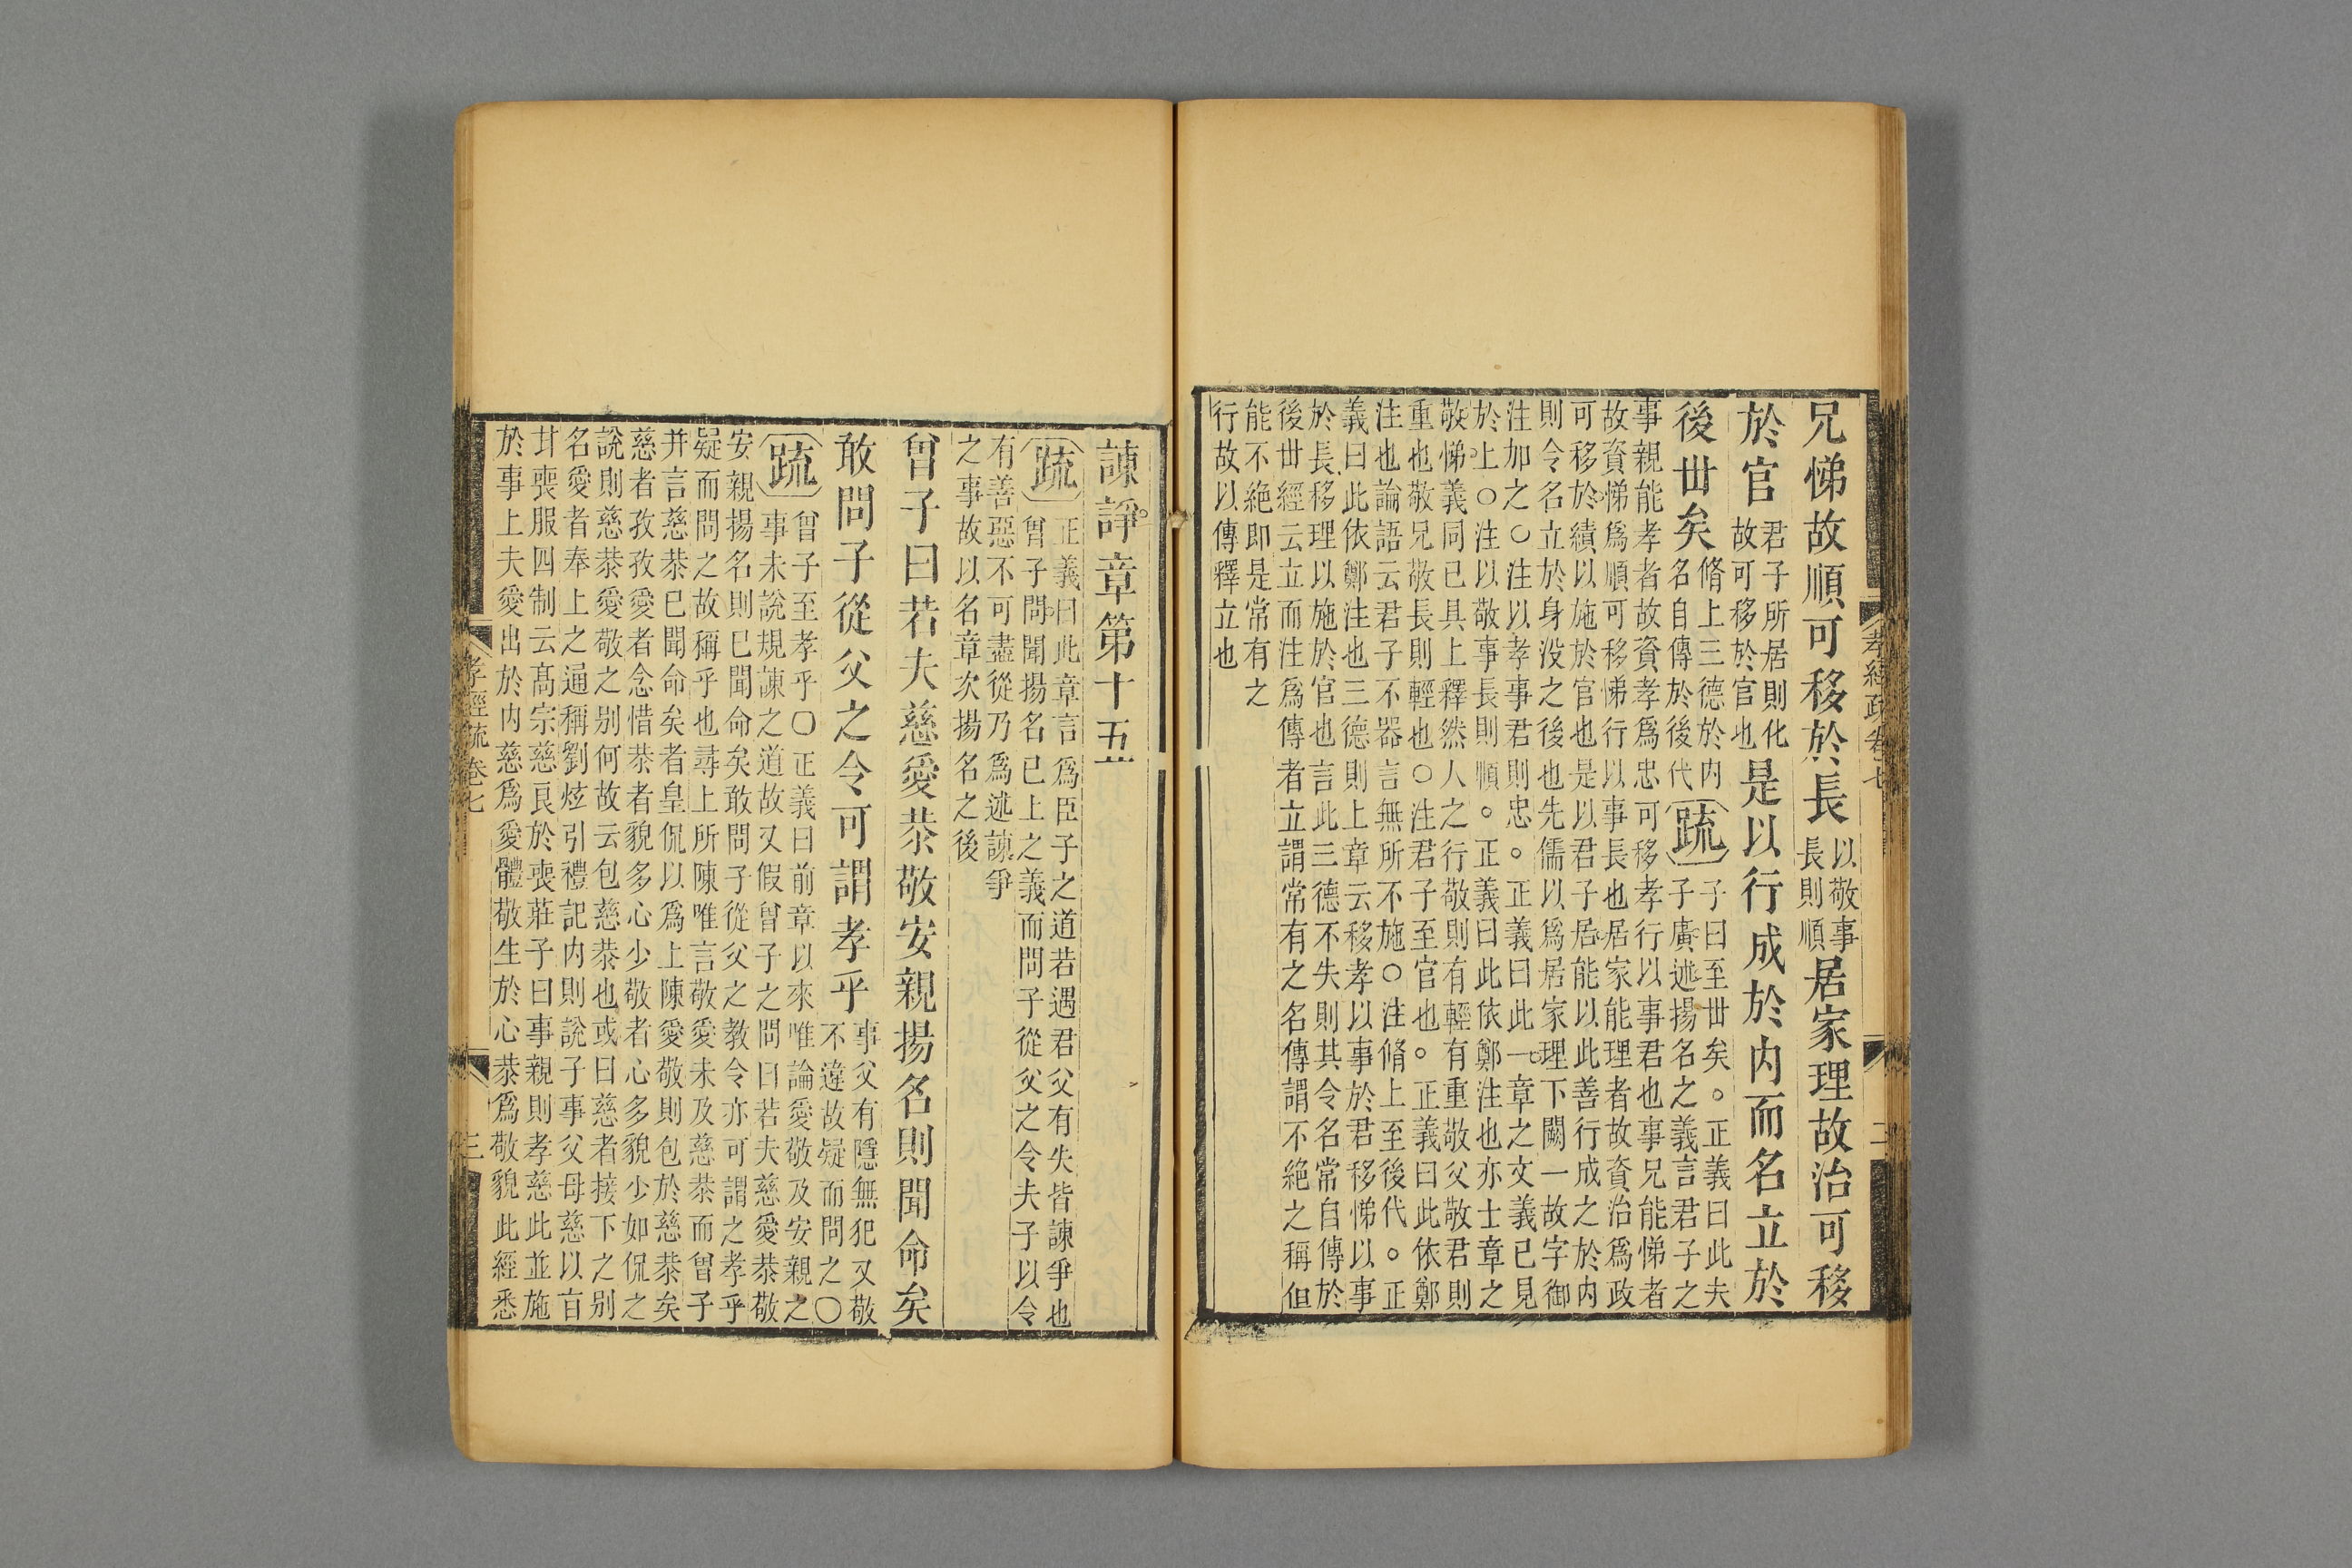 兄悌故順可移於長
以敬事
長則順
居家理故治可移
於官
君子所居則化
故可移於官也
是以行成於内而名立於
後丗矣
脩上三德於内
名自傳於後代
疏
子曰至丗矣。正義曰此夫
子廣述揚名之義言君子之
事親能孝者故資孝爲忠可移孝行以事君也事兄能悌者
故資悌爲順可移悌行以事長也居家能理者故資治爲政
可移於績以施於官也是以君子居能以此善行成之於内
則令名立於身没之後也先儒以爲居家理下闕一故字御
注加之○注以孝事君則忠。正義曰此一章之文義已見
於上○注以敬事長則順。正義曰此依鄭注也亦士章之
敬悌義同已具上釋然人之行敬則有輕有重敬父敬君則
重也敬兄敬長則輕也○注君子至官也。正義曰此依鄭
注也論語云君子不器言無所不施○注脩上至後代。正
義曰此依鄭注也三德則上章云移孝以事於君移悌以事
於長移理以施於官也言此三德不失則其令名常自傳於
後丗經云立而注爲傳者立謂常有之名傳謂不絶之稱但
能不絶即是常有之
行故以傳釋立也
孝經疏卷七
二
諫諍章第十五
疏
正義曰此章言爲臣子之道若遇君父有失皆諫爭也
曾子問聞揚名已上之義而問子從父之令夫子以令
有善惡不可盡從乃爲述諫爭
之事故以名章次揚名之後
曾子曰若夫慈愛恭敬安親揚名則聞命矣
敢問子從父之令可謂孝乎
事父有隱無犯又敬
不違故疑而問之○
疏
曾子至孝乎○正義曰前章以來唯論愛敬及安親之
事未說規諫之道故又假曾子之問曰若夫慈愛恭敬
安親揚名則已聞命矣敢問子從父之教令亦可謂之孝乎
疑而問之故稱乎也尋上所陳唯言敬愛未及慈恭而曾子
并言慈恭已聞命矣者皇侃以爲上陳愛敬則包於慈恭矣
慈者孜孜愛者念惜恭者貌多心少敬者心多貌少如侃之
說則慈恭愛敬之别何故云包慈恭也或曰慈者接下之别
名愛者奉上之通稱劉炫引禮記内則說子事父母慈以旨
甘喪服四制云髙宗慈良於喪莊子曰事親則孝慈此並施
於事上夫愛出於内慈爲愛體敬生於心恭爲敬貌此經悉
孝經疏卷七
三